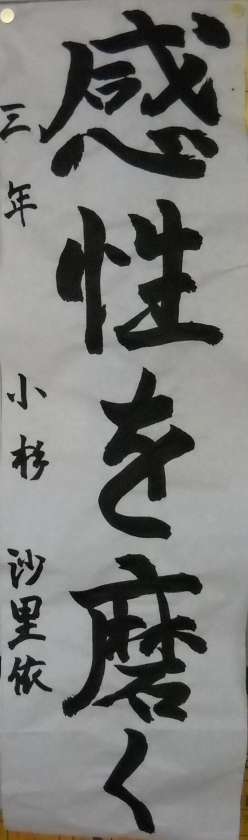 感性を磨く
三年 小杉 沙里依